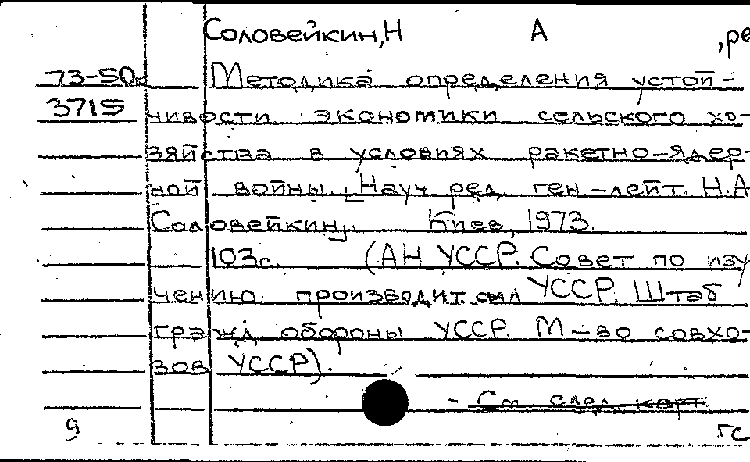 Соловейкин, Н А , ре
73-50 Методика определения устой-
3715 чивости экономики сельского хо-
зяйства в условиях ракетно-ядер-
ной войны. [Науч. ред. ген-лейт. Н.А.
Соловейкин]. Киев, 1973.
103с. (АН УССР. Совет по изу
чению производит. сил УССР. Штаб
гражд. обороны УССР. М-во совхо-
зов УССР).
- См. след. карт.
9 ГС